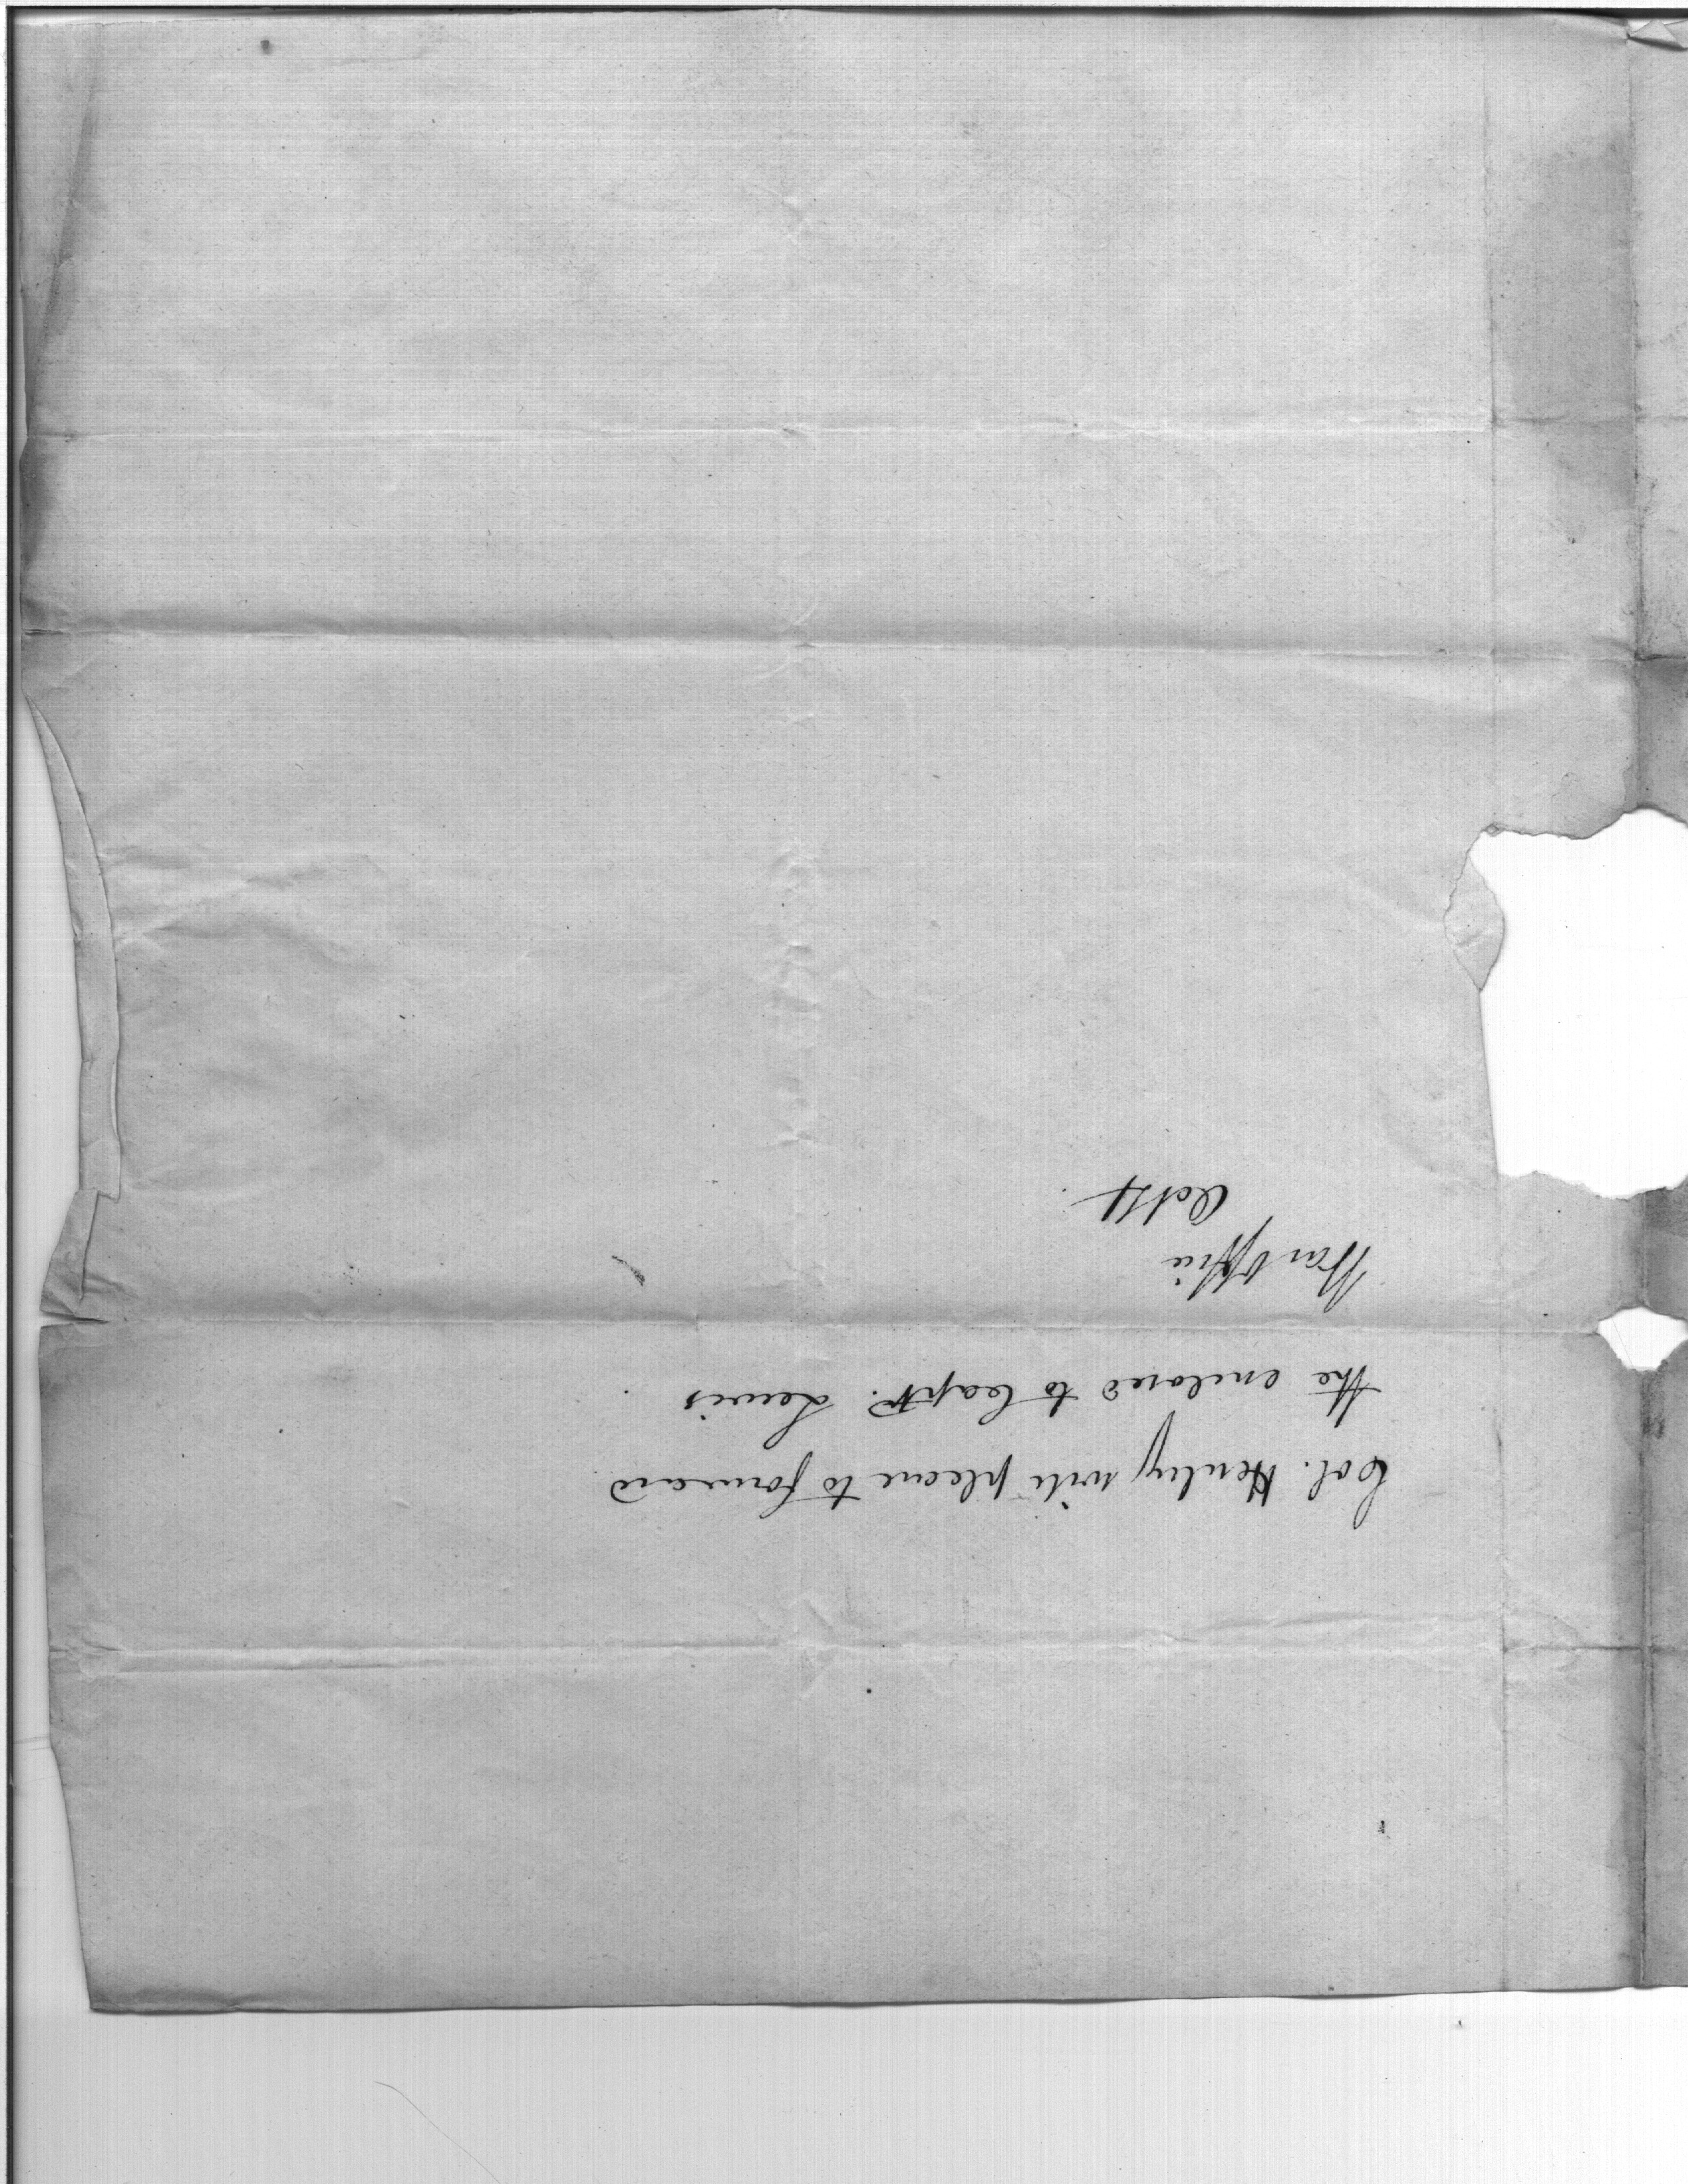 Col. Henley will please to forward
the enclosed to Capt. Lewis
War Office